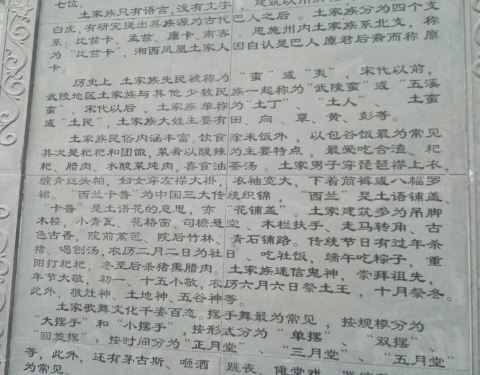 七位。
土家族只有语言，没有文字
白虎，有研究提出其族源为古代巴人之后。土家族分为四个支
系：比兹卡、孟兹、廪卡、南客。恩施州内土家族系北支，称
为“比兹卡”，湘西凤凰土家人因自认是巴人廪君后裔而称廪
历史上，土家族先民被称为“蛮”或“夷”，宋代以前，
武陵地区土家族与其他少数民族一起称为“武陵蛮”或“五溪
蛮”。宋代以后，土家族单称为“土丁”、“土人”、土蛮
或“土民”，土家族大姓主要有田、向、覃、黄、彭等。
土家族民俗内涵丰富。饮食除米饭外，以包谷饭最为常见
其次是粑粑和团馓，菜肴以酸辣为主要特点，最爱吃合渣、粑
粑、腊肉、水酸菜炖肉，喜食油茶汤，土家男子穿琵琶襟上衣，
缠青丝头帕，妇女穿左襟大褂，衣袖宽大，下着筒裤或八幅罗
裙。“西兰卡普”为中国三大传统织锦，“西兰”是土语铺盖
“卡普”是土语花的意思，亦“花铺盖”。土家建筑多为吊脚
木楼，小青瓦、花格窗、司檐悬空、木栏扶手、走马转角、古
色古香，院前篱笆、院后竹林、青石铺路。传统节日有过年杀
猪、喝刨汤，农历二月二日为社日、吃社饭，端午吃粽子，重
阳打粑粑，冬至后杀猪熏腊肉。土家族迷信鬼神，崇拜祖先，
年节大敬，初一、十五小敬，农历六月六日祭土王，十月祭冬。
此外，敬灶神、土地神、五谷神等。
土家歌舞文化千姿百态。摆手舞最为常见，按规模分为
“大摆手”和“小摆手”，按形式分为“单摆”、“双摆”、
“回旋摆”，按时间分为“正月堂”、“三月堂”、“五月堂”
等，此外，还有茅古斯、咂酒 跳丧、傩堂戏
为常见。